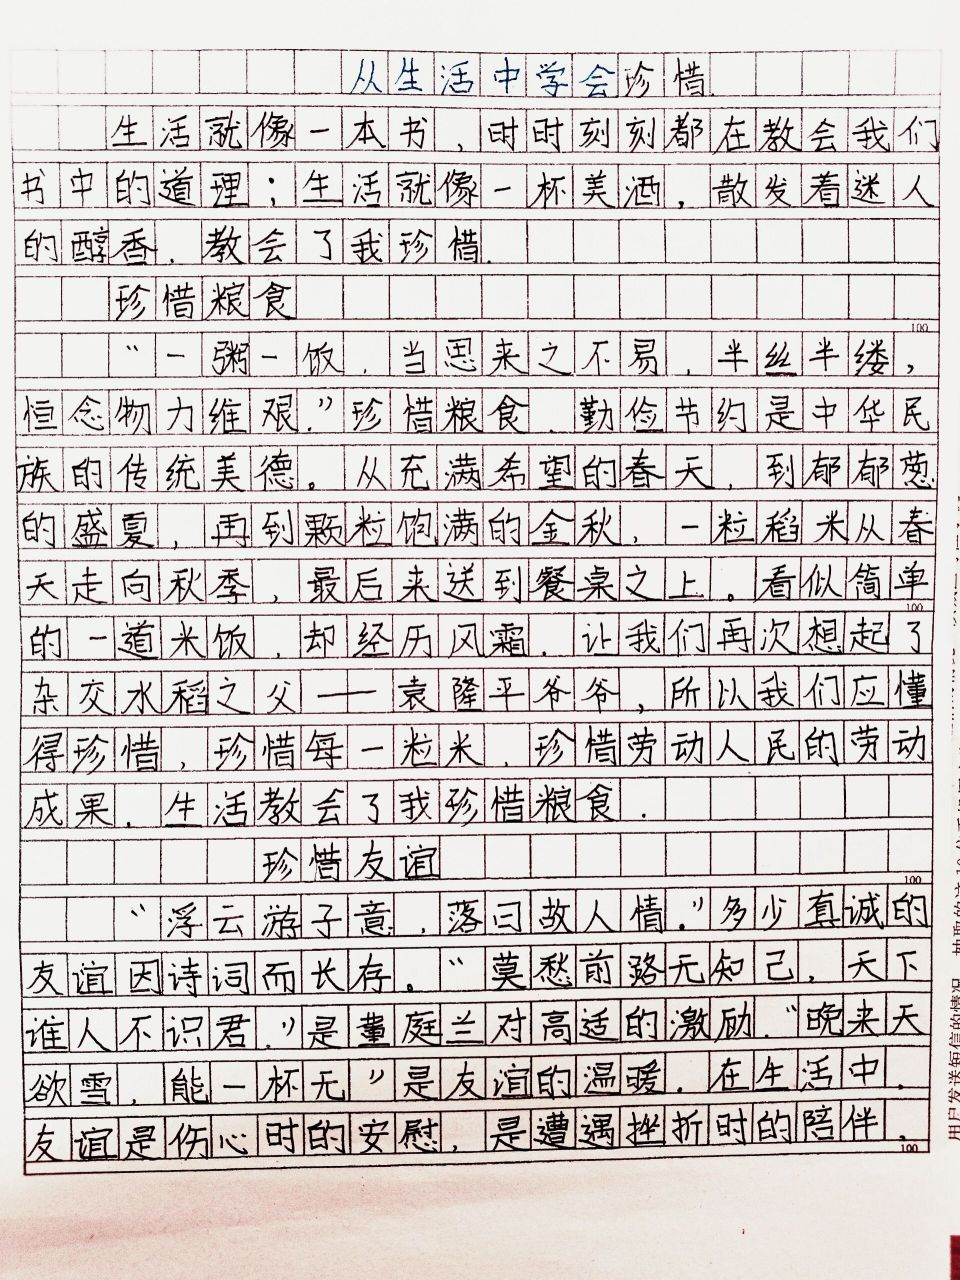 从生活中学会珍惜
生活就像一本书，时时刻刻都在教会我们
书中的道理；生活就像一杯美酒，散发着迷人
的醇香，教会了我珍惜.
珍惜粮食
“一粥一饭，当思来之不易，半丝半缕，
恒念物力维艰.”珍惜粮食，勤俭节约是中华民
族的传统美德。从充满希望的春天，到郁郁葱
的盛夏，再到颗粒饱满的金秋，一粒稻米从春
天走向秋季，最后来送到餐桌之上。看似简单
100
的一道米饭，却经历风霜.让我们再次想起了
杂交水稻之父——袁隆平爷爷，所以我们应懂
得珍惜，珍惜每一粒米，珍惜劳动人民的劳动
成果，生活教会了我珍惜粮食.
珍惜友谊
100
“浮云游子意，落日故人情.”多少真诚的
友谊因诗词而长存。“莫愁前路无知己，天下
谁人不识君.”是董庭兰对高适的激励.“晚来天
欲雪，能一杯无”是友谊的温暖.在生活中，
友谊是伤心时的安慰，是遭遇挫折时的陪伴，
100